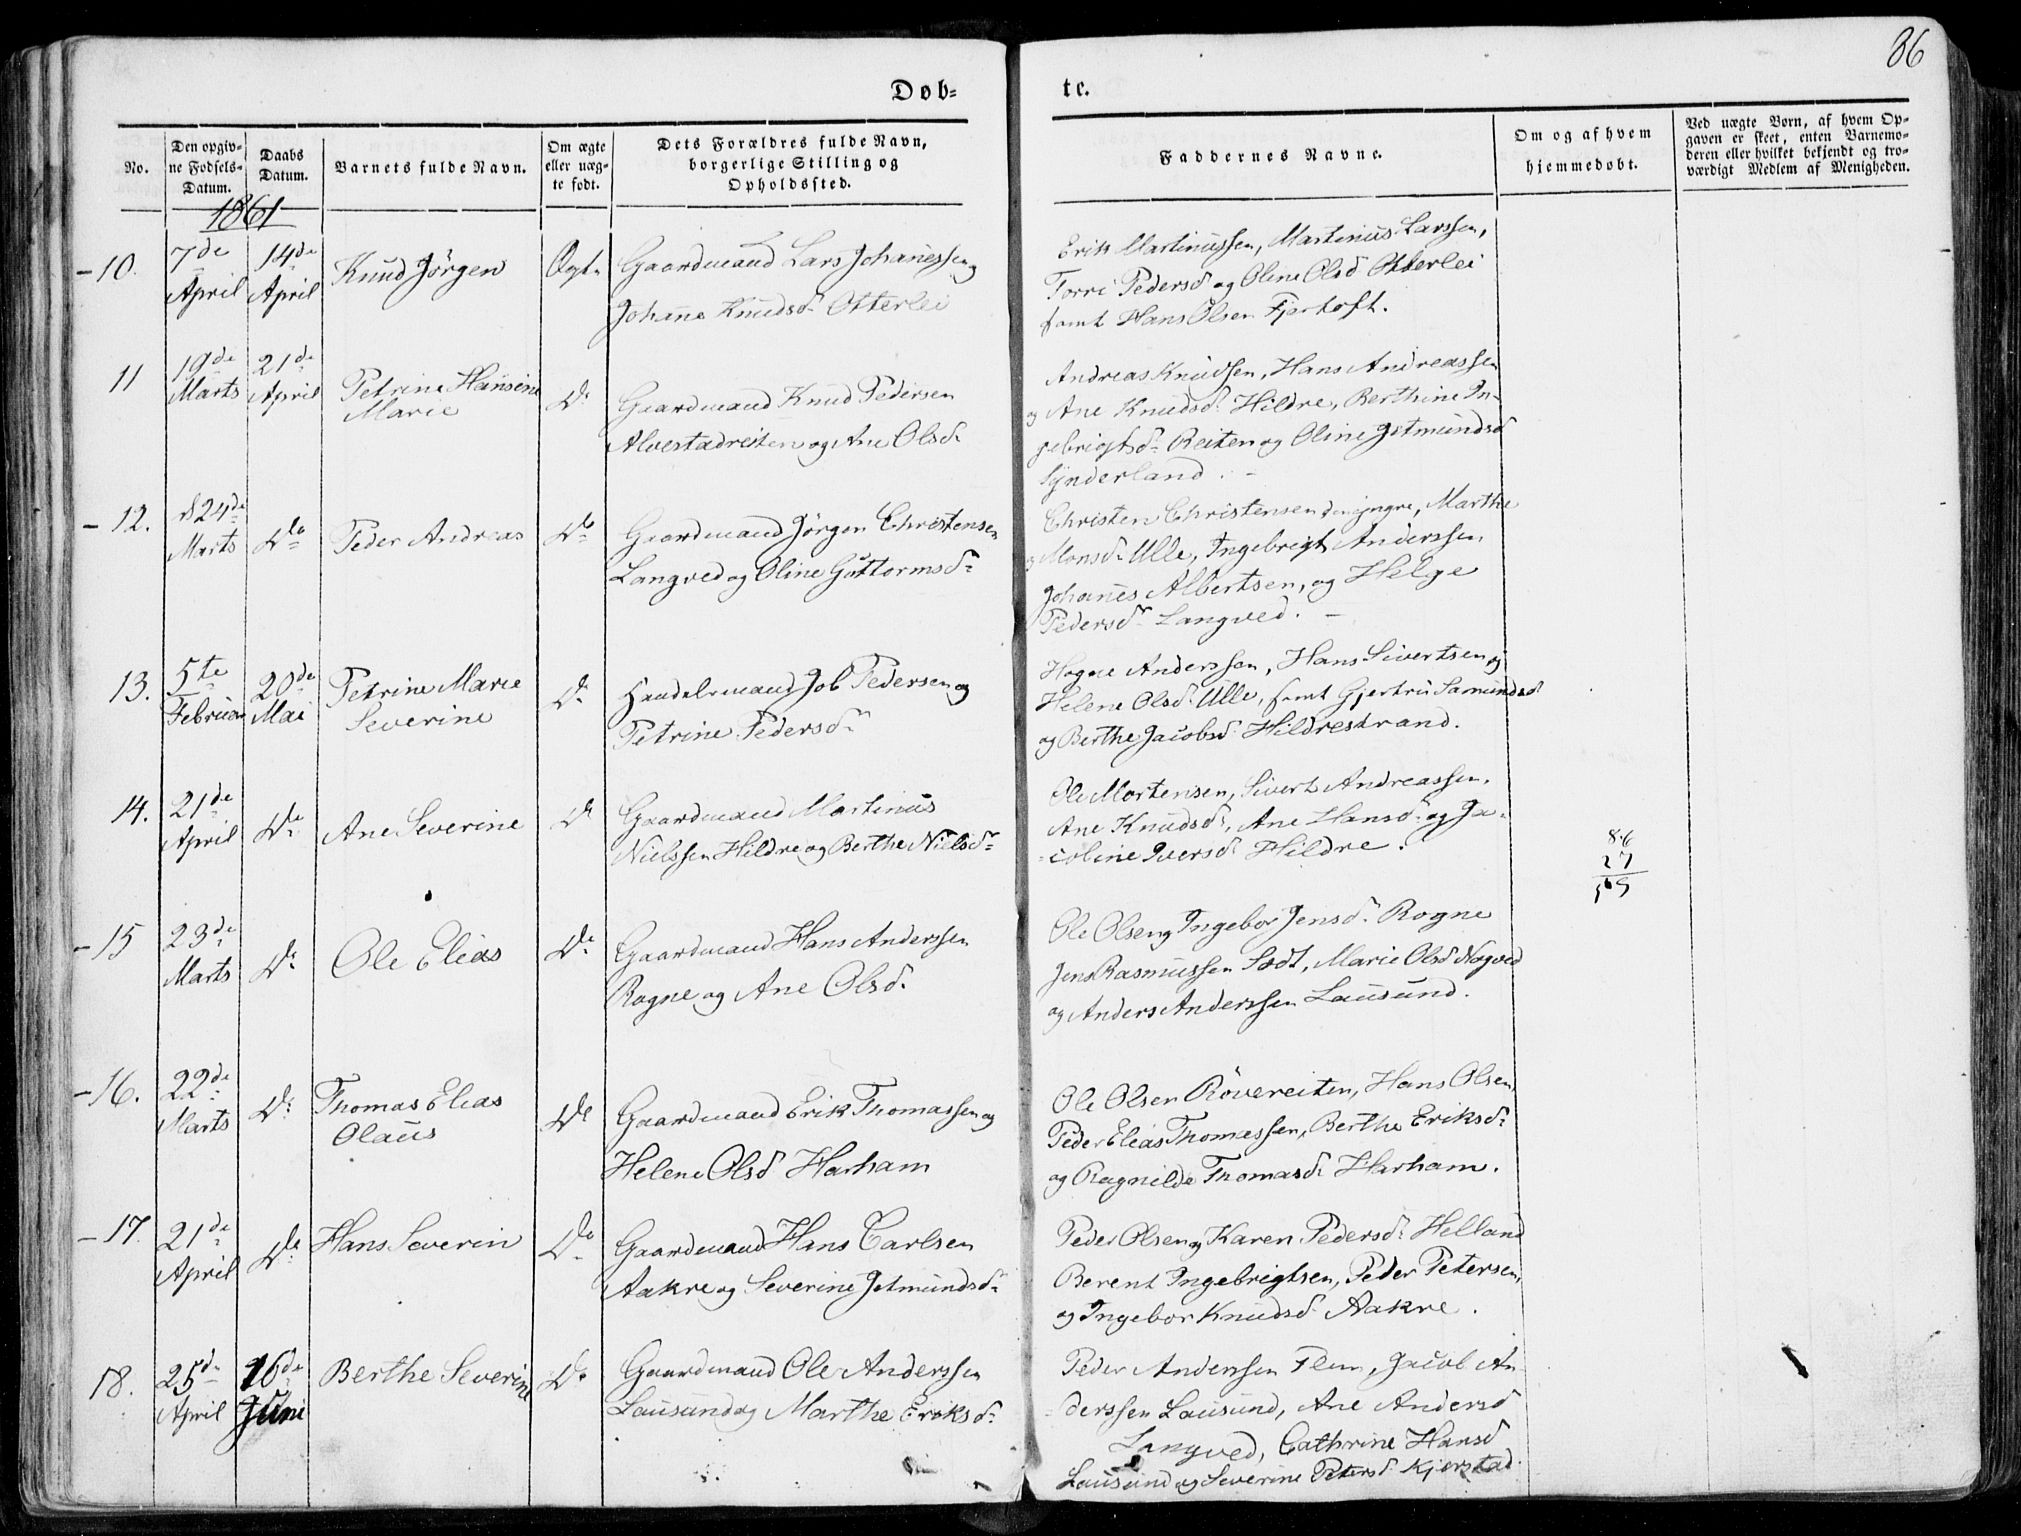 86
Døb=
te.
No.
Den opgiv-
ne Fødsels-
Datum.
Daabs
Datum.
Barnets fulde Navn.
Om ægte
eller uæg-
te født.
Dets Forældres fulde Navn,
borgerlige Stilling og
Opholdssted.
Faddernes Navne.
Om og af hvem
hjemmedøbt.
Ved uægte Børn, af hvem Op-
gaven er skeet, enten Barnemo-
deren eller hvilket bekjendt og tro-
værdigt Medlem af Menigheden.
1861
-10.
7de
April
14de
April
Knud Jörgen
Ægt.
Gaardmand Lars Johanessen og
Johanne Knudsd. Otterlei
Erik Martinussen, Martinus Larssen,
Torri Pedersd og Oline Olsd Otterlei
samt Hans Olsen Fjertoft.
11
19de
Marts
21de
April
Petrine Hansine
Marie
Do
Gaardmand Knud Pedersen
Alvestadreiten og Ane Olsd.
Andreas Knudsen, Hans Andreassen
og Ane Knudsd. Hildre, Berthine In-
gebrigtsd. Reiten og Oline Jetmundsd
Synderland.
- 12.
24de
Marts
Do
Peder Andreas
Do
Gaardmand Jörgen Christensen
Langved og Oline Guttormsd.
Christen Christensen den yngre, Marthe
Monsd. Ulle, Ingebrigt Anderssen,
Johanes Albertsen, og Helge
Pedersd. Langved. -
13.
5te
Februar
20de
Mai
Petrine Marie
Severine
Do
Handelsmand Job Pedersen og
Petrine Pedersd.
Hogne Anderssen, Hans Sivertsen og
Helene Olsd. Ulle, samt Gjertru Samundsd
og Berthe Jacobsd. Hildrestrand.
14.
21de
April
Do
Ane Severine
Do
Gaardmand Martinus
Nielssen Hildre og Berthe Nielsd.
Ole Mortensen, Sivert Andreassen,
Ane Knudsd., Ane Hansd. og Ja-
cobine Iversd. Hildre.
86
27
-15
23de
Marts
Do
Ole Elias
Do
Gaardmand Hans Anderssen
Rogne og Ane Olsd.
Ole Olsen og Ingebor Jensd. Rogne
Jens Rasmussen Sædt, Marie Olsd Nogved
og Anders Anderssen Lausund.
-16.
22de
Marts
Do
Thomas Elias
Olaus
Do
Gaardmand Erik Thomassen og
Helene Olsd Harham
Ole Olsen Rövereiten, Hans Olsen,
Peder Elias Thomassen, Berthe Eriksd.
og Ragnilde Thomasd. Harham.
-17.
21de
April
Do
Hans Severin
Do
Gaardmand Hans Carlsen
Aakre og Severine Jetmundsd.
Peder Olsen og Karen Pedersd. Helland
Berent Ingebrigtsen, Peder Petersen,
og Ingebor Knudsd. Aakre.
18.
25de
April
16de
Juni
Berthe Severine
Do
Gaardmand Ole Anderssen
Lausund og Marthe Eriksd.
Peder Anderssen Flem, Jacob An-
derssen Lausund, Ane Andersd
Langved, Cathrine Hansd
Lausund og Severine Petersd. Kjerstad.